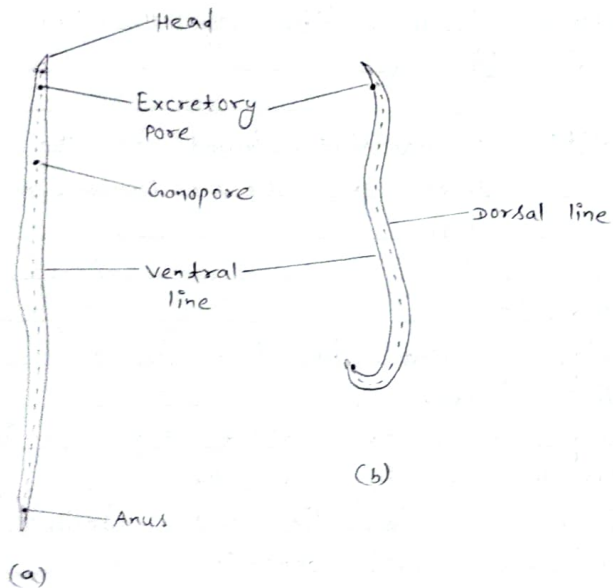 Head
Excretory
pore
Gonopore
Dorsal line
Ventral
line
(b)
Anus
(a)